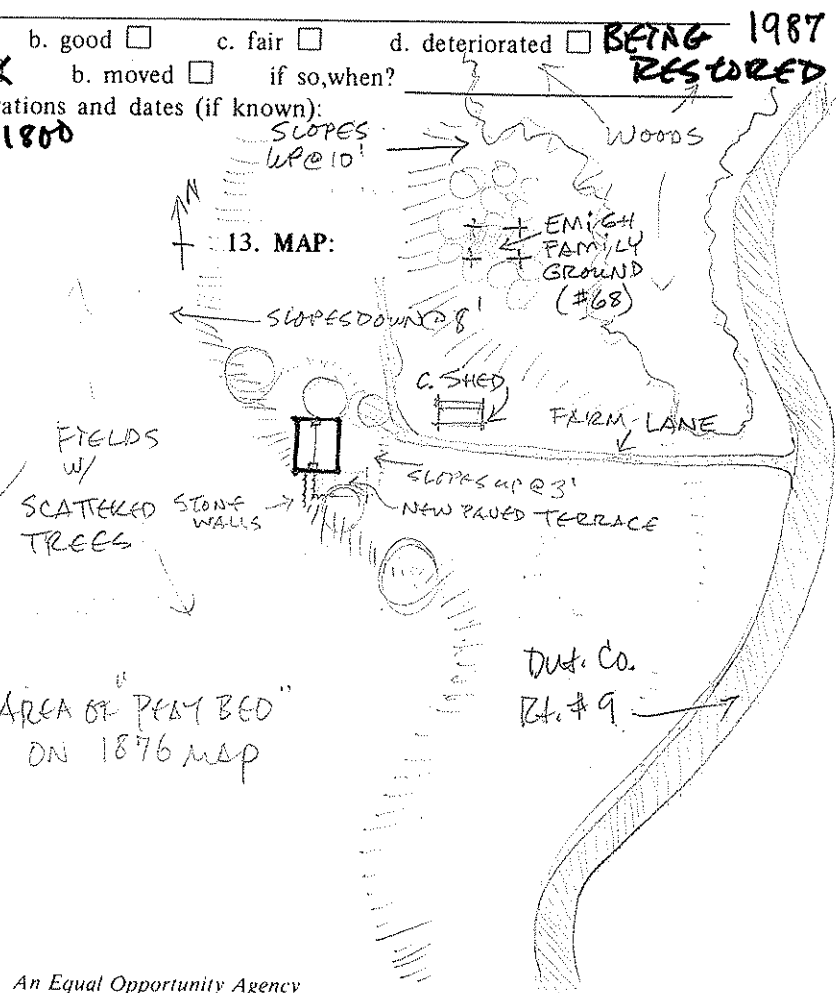 b. good ☐ c. fair ☐ d. deteriorated ☐ BEING 1987
b. moved ☐ if so,when? RESTORED
ations and dates (if known):
1800
SLOPES
UP @ 10'
WOODS
N
13. MAP:
EMIGH
FAMILY
GROUND
(#68)
SLOPES DOWN @ 8'
C. SHED
FARM LANE
FIELDS
W/
SCATTERED
TREES
STONE
WALLS
SLOPES UP @ 3'
NEW PAVED TERRACE
Dut. Co.
Rt. #9
AREA OF "PEAT BED"
ON 1876 MAP
An Equal Opportunity Agency